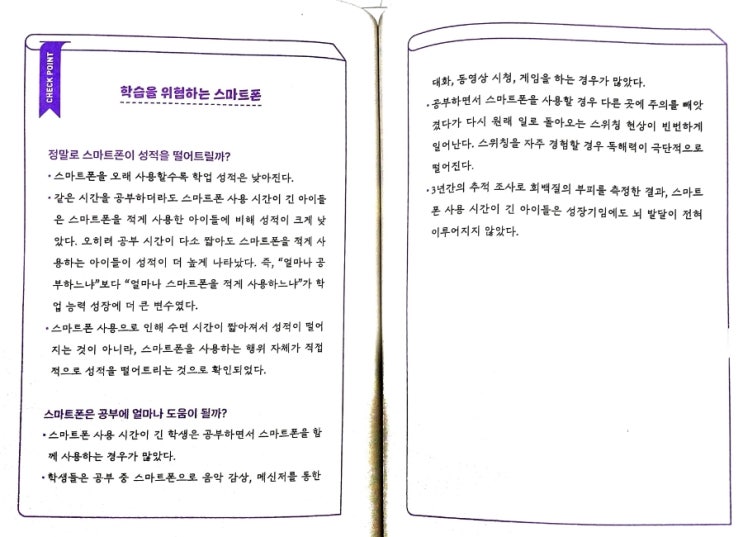 CHECK POINT
학습을 위협하는 스마트폰
정말로 스마트폰이 성적을 떨어트릴까?
• 스마트폰을 오래 사용할수록 학업 성적은 낮아진다.
• 같은 시간을 공부하더라도 스마트폰 사용 시간이 긴 아이들
은 스마트폰을 적게 사용한 아이들에 비해 성적이 크게 낮
았다. 오히려 공부 시간이 다소 짧아도 스마트폰을 적게 사
용하는 아이들이 성적이 더 높게 나타났다. 즉, “얼마나 공
부하느냐”보다 “얼마나 스마트폰을 적게 사용하느냐”가 학
업 능력 성장에 더 큰 변수였다.
• 스마트폰 사용으로 인해 수면 시간이 짧아져서 성적이 떨어
지는 것이 아니라, 스마트폰을 사용하는 행위 자체가 직접
적으로 성적을 떨어트리는 것으로 확인되었다.
스마트폰은 공부에 얼마나 도움이 될까?
• 스마트폰 사용 시간이 긴 학생은 공부하면서 스마트폰을 함
께 사용하는 경우가 많았다.
• 학생들은 공부 중 스마트폰으로 음악 감상, 메신저를 통한
대화, 동영상 시청, 게임을 하는 경우가 많았다.
• 공부하면서 스마트폰을 사용할 경우 다른 곳에 주의를 빼앗
겼다가 다시 원래 일로 돌아오는 스위칭 현상이 빈번하게
일어난다. 스위칭을 자주 경험할 경우 독해력이 극단적으로
떨어진다.
• 3년간의 추적 조사로 회백질의 부피를 측정한 결과, 스마트
폰 사용 시간이 긴 아이들은 성장기임에도 뇌 발달이 전혀
이루어지지 않았다.